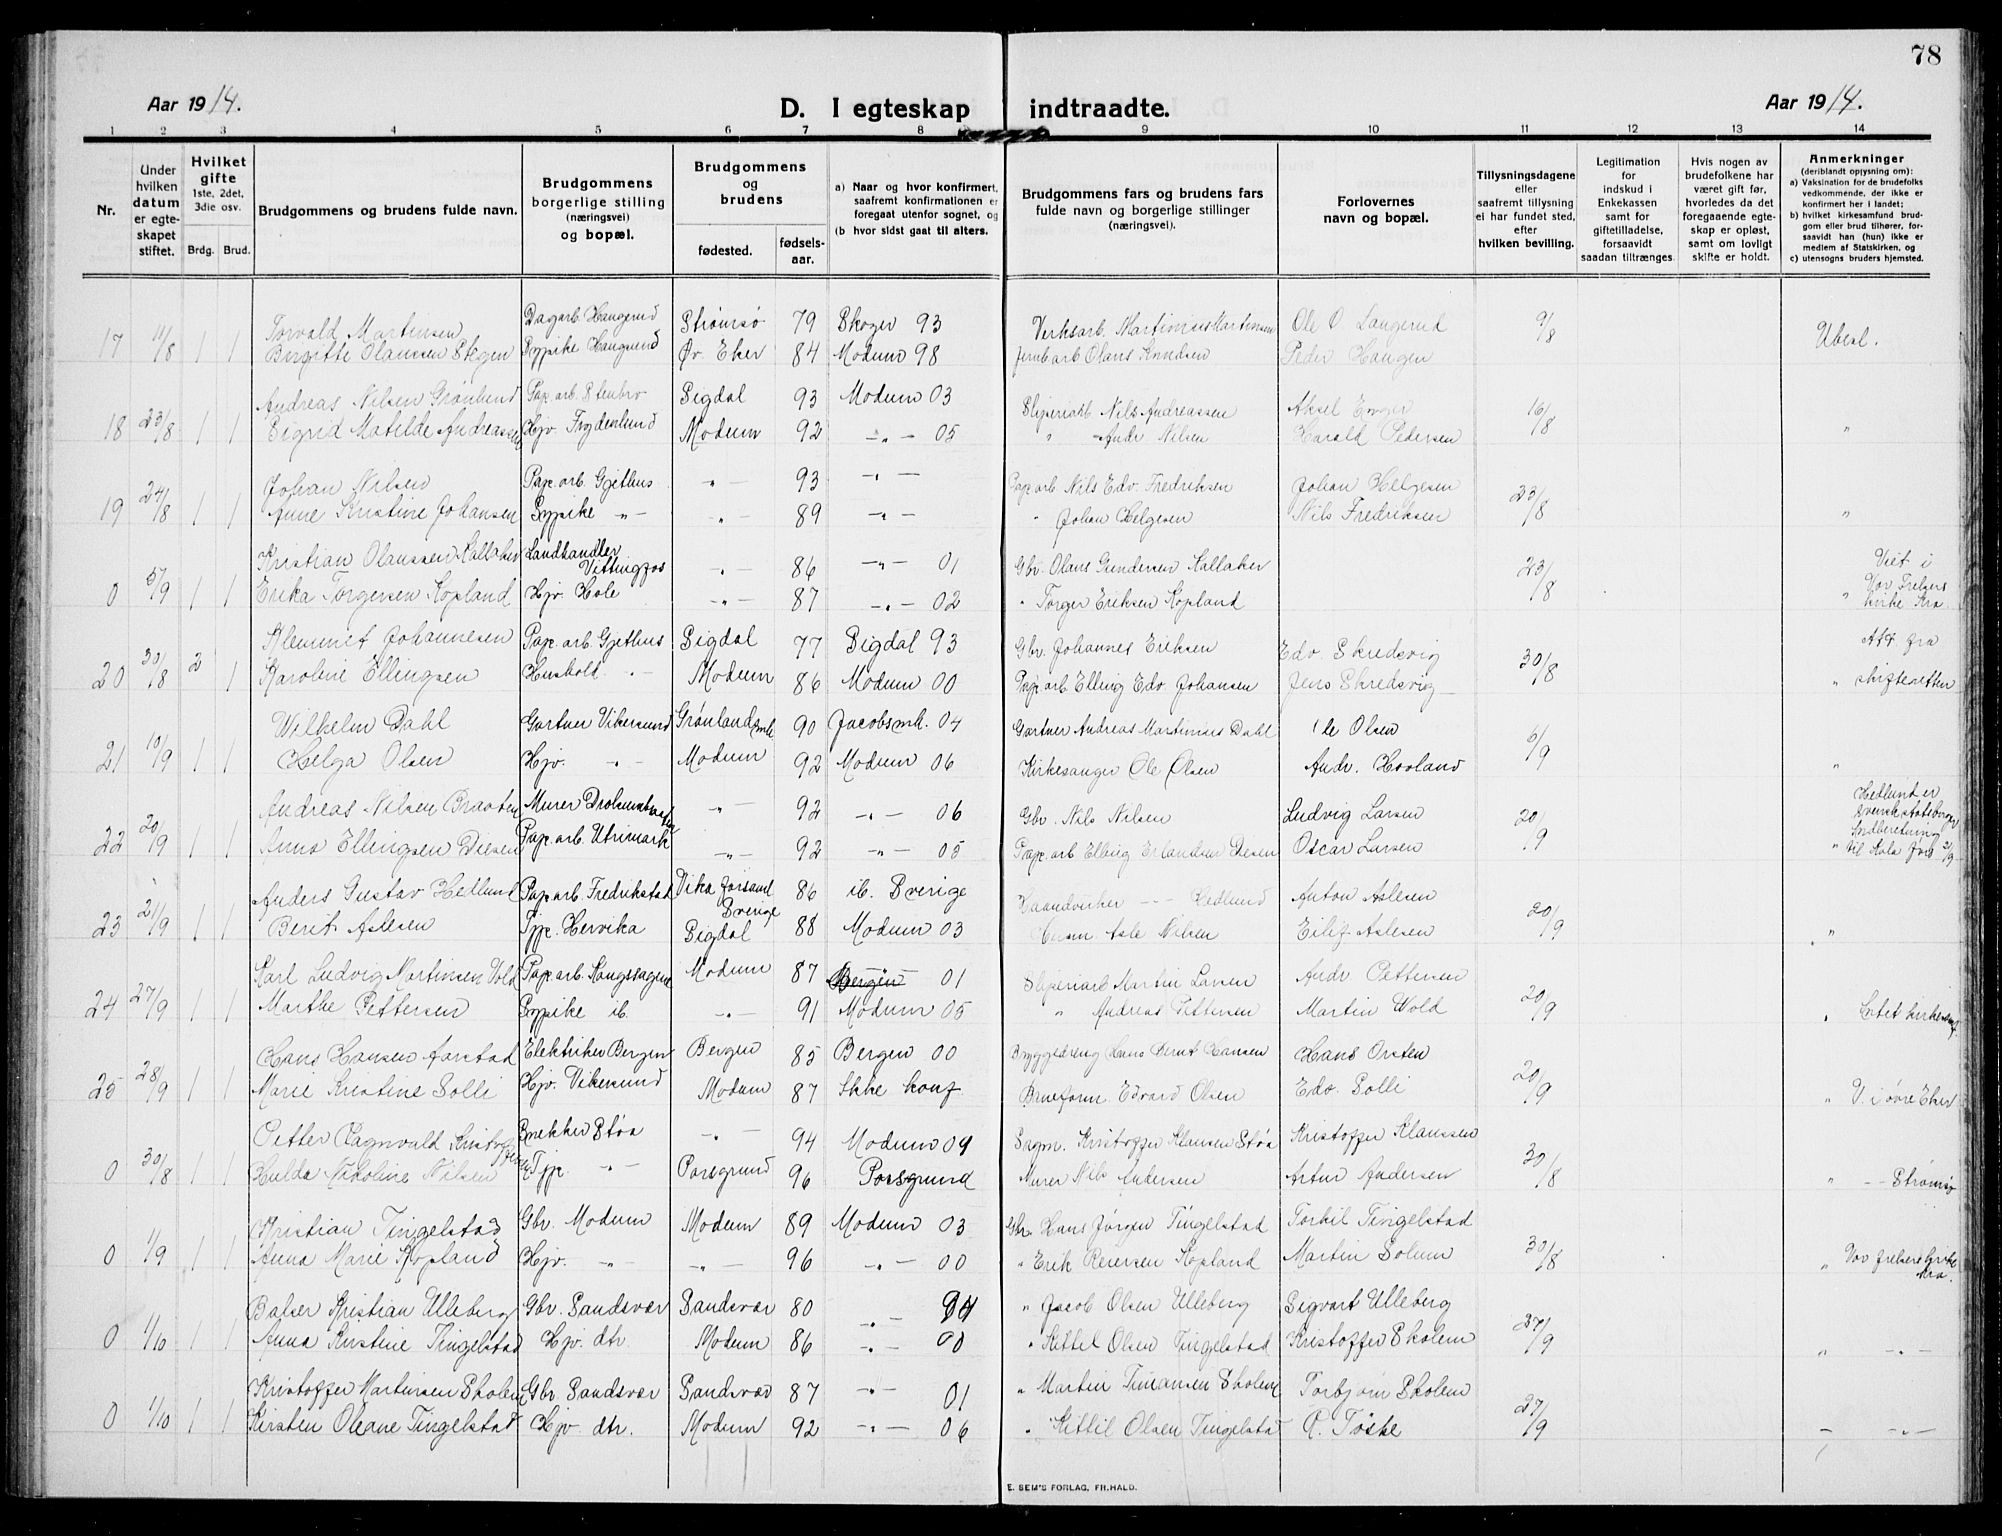 78
Aar 1914.
D. I egteskap indtraadte.
Aar 1914.
1 2 3 4 5 6 7 8 9 10 11 12 13 14
Nr.
Under hvilken datum er egteskapet stiftet.
Hvilket gifte 1ste, 2det, 3die osv. Brdg. Brud.
Brudgommens og brudens fulde navn.
Brudgommens borgerlige stilling (næringsvei) og bopæl.
Brudgommens og brudens fødested. fødsels-aar.
a) Naar og hvor konfirmert, saafremt konfirmationen er foregaat utenfor sognet, og
(b hvor sidst gaat til alters.
Brudgommens fars og brudens fars fulde navn og borgerlige stillinger (næringsvei).
Forlovernes navn og bopæl.
Tillysningsdagene eller saafremt tillysning ei har fundet sted, efter hvilken bevilling.
Legitimation for indskud i Enkekassen samt for giftetilladelse, forsaavidt saadan tiltrænges.
Hvis nogen av brudefolkene har været gift før, hvorledes da det foregaaende egteskap er opløst, samt om lovligt skifte er holdt.
Anmerkninger (deriblandt opjysning om):
a) Vaksination for de brudefolks vedkommende, der ikke er konfirmert her i landet;
b) hvilket kirkesamfund brudgom eller brud tilhører, forsaavidt han (hun) ikke er medlem af Statskirken, og
c) utensogns bruders hjemsted.
17 11/8 1 1 Torvald Martinsen Dagarb. Haugerud Strømsø 79 Skoger 93 Verksarb. Martinius Martinsen Ole O. Langerud 9/8 Ubesl.
Birgitte Olaussen Stegen Sypike Haugerud Øv. Eker 84 Modum 98 Jernbarb Olaus Knudsen Peder Haugen
18 23/8 1 1 Andreas Nilsen Grønlund Pap. arb. Stenbro Sigdal 93 Modum 03 Sliperiarb. Nils Andreassen Aksel Enger 16/8
Sigrid Matilde Andreassen Hjv. Frydenlund Modum 92 —„— 05 „ Andr Nilsen Harald Pedersen „
19 24/8 1 1 Johan Nilsen Pap. arb. Gjethus —„— 93 —„— Pap arb Nils Edv. Fredriksen Johan Helgesen 23/8
Anne Kristine Johansen Sypike —„— —„— 89 —„— „ Johan Helgesen Nils Fredriksen „
0 5/9 1 1 Kristian Olaussen Kallaker Landhandler Vittingfos —„— 86 —„— 01 Gbr. Olaus Gundersen Kallaker 23/8 Viet i
Erika Torgersen Kopland Hjv. Hole —„— 87 —„— 02 „ Torger Eriksen Kopland „ Vor Frelsers kirke Kra.
20 30/8 2 1 Klemmet Johannesen Pap. arb. Gjethus Sigdal 77 Sigdal 93 Gbr. Johannes Eriksen Edv. Skredsvig 30/8 Att. fra
Karoline Ellingsen Hushold. —„— Modum 86 Modum 00 Pap. arb Elling Edv. Johansen Jens Skredsvig „ skifteretten
21 10/9 1 1 Wilhelm Dahl Gartner Vikersund Grønland 90 Jacobsmh. 04 Gartner Andreas Martinius Dahl Ole Olsen 6/9
Helga Olsen Hjv. —„— Modum 92 Modum 06 Kirkesanger Ole Olsen Andr. Hovland „
22 20/9 1 1 Andreas Nilsen Braaten Murer —„— 92 —„— 06 Gbr. Nils Nilsen Ludvig Larsen 20/9 Hedlund er svensk statsborger
Anna Ellingsen Diesen Pap. arb. Utrimark —„— 92 —„— 05 Pap. arb Elling Erlandsen Diesen Oscar Larsen „ Indberetning til
23 21/9 1 1 Anders Gustav Hedlund Pap. arb. Fredrikstad Vika Sverige 86 ib. Sverige Haandverker --- Hedlund Anton Aslesen 20/9
Berit Aslesen Tjp. Hervika Sigdal 88 Modum 03 Husm. Asle Nilsen Eilif Aslesen „
24 27/9 1 1 Karl Ludvig Martinsen Vold Pap. arb. Modum 87 Bergen 01 Sliperiarb Martin Larsen Andr Pettersen 20/9
Marthe Pettersen Sypike ib. —„— 91 Modum 05 „ Andreas Pettersen Martin Wold
25 28/9 1 1 Hans Hansen Aarstad Elektriker Bergen Bergen 85 Bergen 00 Bryggedreng Hans Bernt Hansen Hans Orsten 20/9
Marie Kristine Solli Hjv. Vikersund Modum 87 Ikke konf Baneform. Edvard Olsen Edv. Solli „ V. i øvre Eker
0 30/8 1 1 Petter Ragnvald Kristoffersen Snekker Støa —„— 94 Modum 09 Sagm. Kristoffer Klausen Støa Kristoffer Klaussen 30/8
Hulda Nikoline Nilsen Tjp. —„— Porsgrund 96 Porsgrund Murer Nils Andersen Artur Andersen „ —„— Strømsø
0 1/9 1 1 Kristian Tingelstad Gbr. Modum Modum 89 Modum 03 Gbr. Hans Jørgen Tingelstad Torkil Tingelstad 30/8
Anna Marie Kopland Hjv. —„— —„— 96 —„— 00 „ Erik Reiersen Kopland Martin Solum „ Vor frelsers kirke Kra.
0 1/10 1 1 Balser Kristian Ulleberg Gbr. Sandsvær Sandsvær 80 —„— 94 „ Jacob Olsen Ulleberg Sigvart Ulleberg 27/9
Anna Kristine Tingelstad Hjv. dtr. Modum 86 —„— 00 „ Kittel Olsen Tingelstad Kristoffer Skolem „ —„—
0 1/10 1 1 Kristoffer Martinsen Skolem Gbr. Sandsvær Sandsvær 87 —„— 01 „ Martin Timansen Skolem Torbjørn Skolem 27/9
Kirsten Oleane Tingelstad Hjv dtr. Modum 92 —„— 06 „ Kittil Olsen Tingelstad R. Tøske — —„—
E. SEM'S FORLAG, FR.HALD.